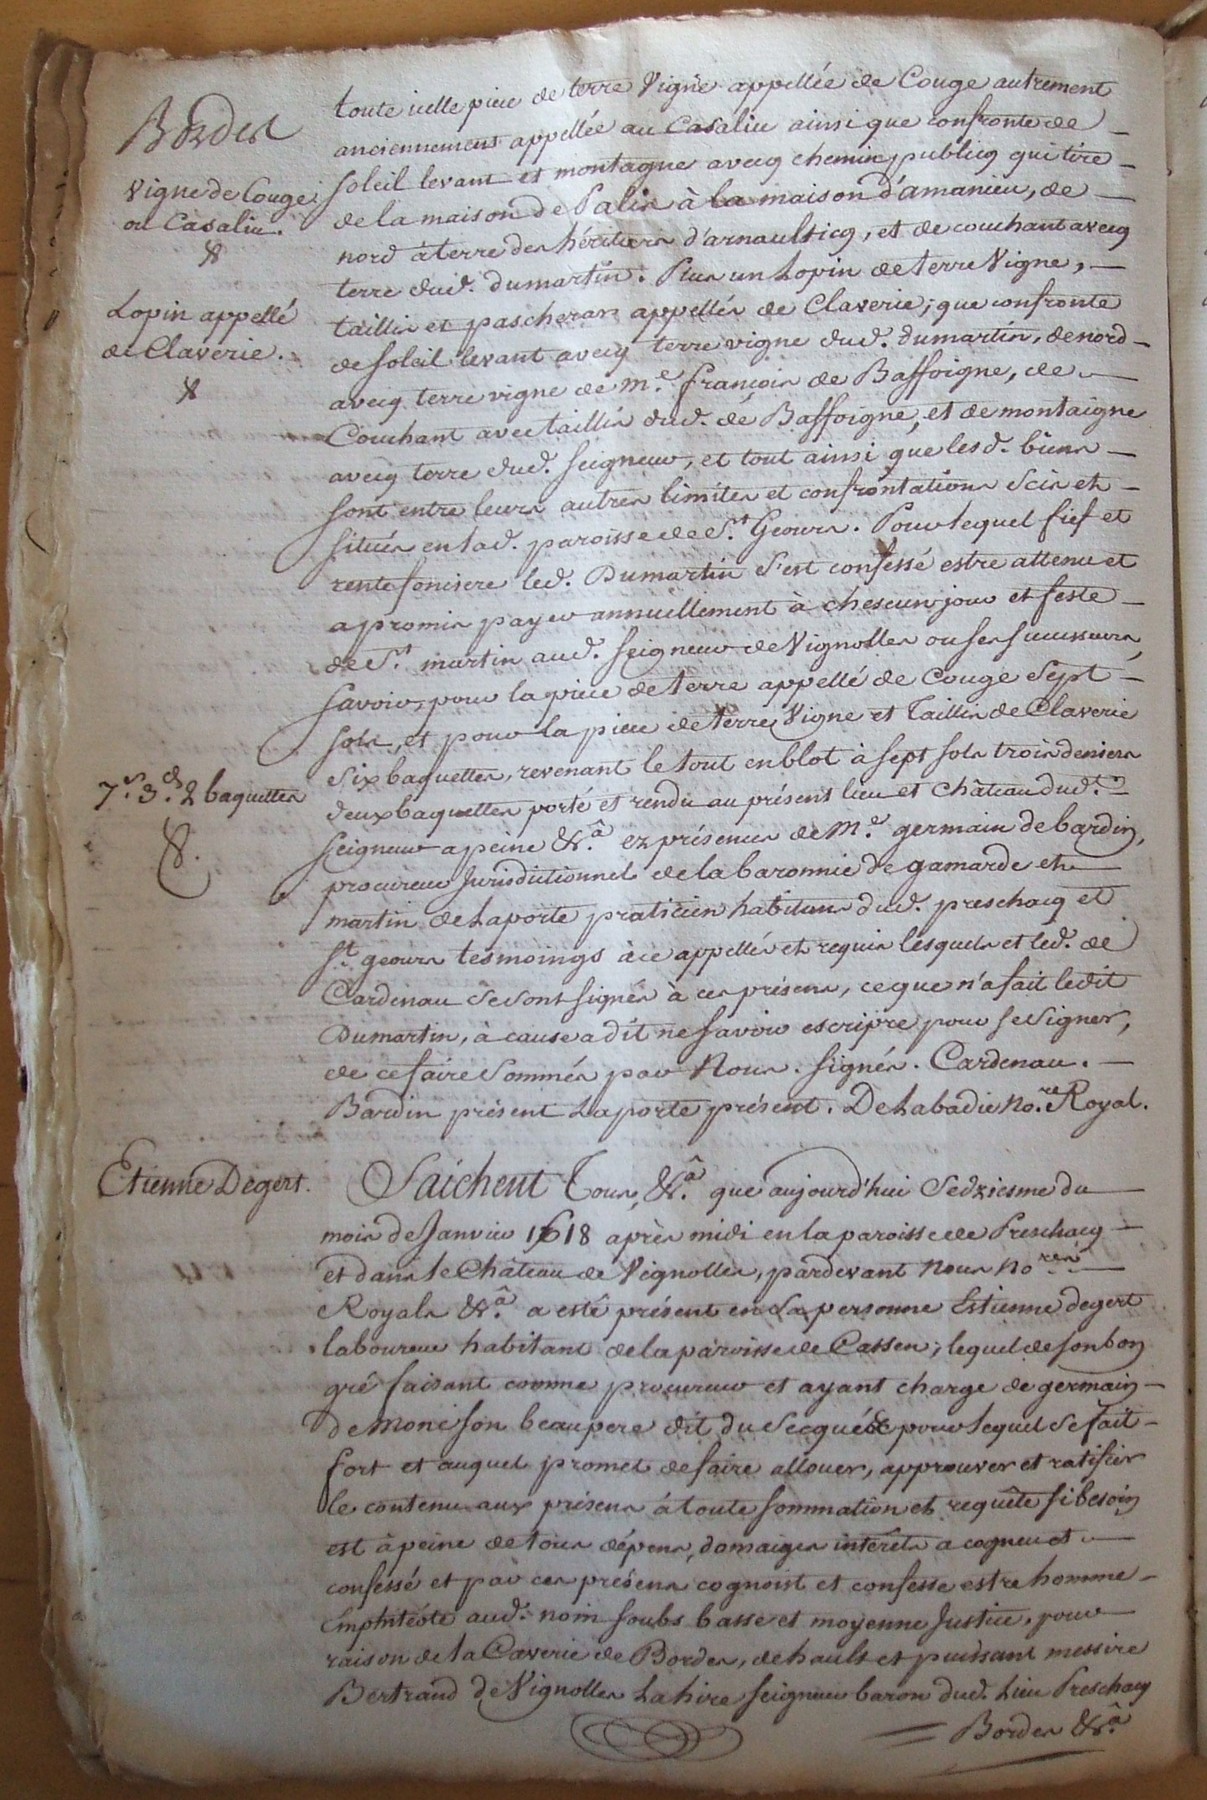 Bordes
toute icelle piece de terre Vigne appellée de Couge autrement
anciennement appellée au Casaliu ainsi que confronte de
Vigne de Couge
ou Casaliu.
soleil levant et montagne avecq chemin publicq qui tire
de la maison de Palis à la maison d'amanieu, de
nord à terre des héritiers d'arnaulticq, et de couchant avecq
terre dud. dumartin. Plus un Lopin de terre Vigne,
Lopin appellé
de Claverie.
taillis et pascheras appellés de Claverie, que confronte
de soleil levant avecq terre vigne dud. dumartin, de nord
avecq terre vigne de Me. françois de Baffoigne, de
Couchant avec taillis dud. de Baffoigne, et de montaigne
avecq terre dud. seigneur, et tout ainsi que lesd. biens
sont entre leurs autres limites et confrontations Scis et
situés en lad. paroisse de St. Geours. Pour lequel fief et
rente fonciere led. Dumartin s'est confessé estre attenu et
a promis payer annuellement à chescun jour et feste
de St. martin aud. seigneur de Vignolles ou ses successeurs,
savoir, pour la piece de terre appellé de Couge Sept
sols, et pour la piece de terre Vigne et Taillis de Claverie
six baquettes, revenant le tout en blot à sept sols trois deniers
7s. 3d. 2 baquettes
deux baquettes porté et rendu au présent lieu et Château dud.
seigneur a peine &a. ez présences de Me. germain de bardin,
procureur Jurisdictionnel de la baronnie de gamarde et
martin de Laporte praticien habitans dud. preschacq et
St. geours tesmoings à ce appellés et requis lesquels et led. de
Cardenau se sont signés à ces présens, ce que n'a fait ledit
Dumartin, à cause a dit ne savoir escripre pour se signer,
de ce faire sommés par Nous. signés. Cardenau.
Bardin présent Laporte présent. De Labadie No.re Royal.
Etienne Degert.
Saichent Tous, &a. que aujourd'hui Sedziesme du
mois de Janvier 1618 après midi en la paroisse de Preschacq
et dans le Château de Vignolles, pardevant Nous No.res
Royals &a. a esté présent en sa personne Estienne degert
laboureur habitant de la paroisse de Cassen, lequel de son bon
gré faisant comme procureur et ayant charge de germain
de Monc son beaupere dit du Secqué pour lequel se fait
fort et auquel promet de faire allouer, approuver et ratifier
le contenu aux présens à toute sommation et requête si besoin
est à peine de tous dépens, domaiges intérêts a cogneu et
confessé et par ces présens cognoist et confesse estre homme
Emphitéote aud. nom soubs basse et moyenne Justice, pour
raison de la Caverie de Bordes, de hault et puissant messire
Bertrand de Vignolles Lahire seigneur baron dud. Lieu Preschacq
Bordes &a.